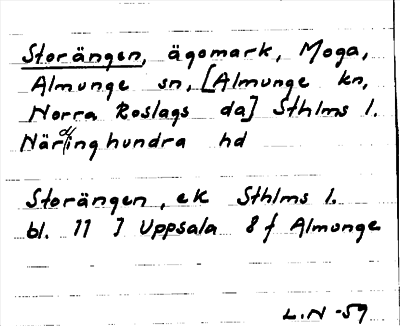 Storängen, ägomark, Moga,
Almunge sn, [Almunge kn,
Norra Roslags da] Sthlms l.
Närdinghundra hd
Storängen, ek Sthlms l.
bl. 11 I Uppsala 8 f Almunge
L.N -59